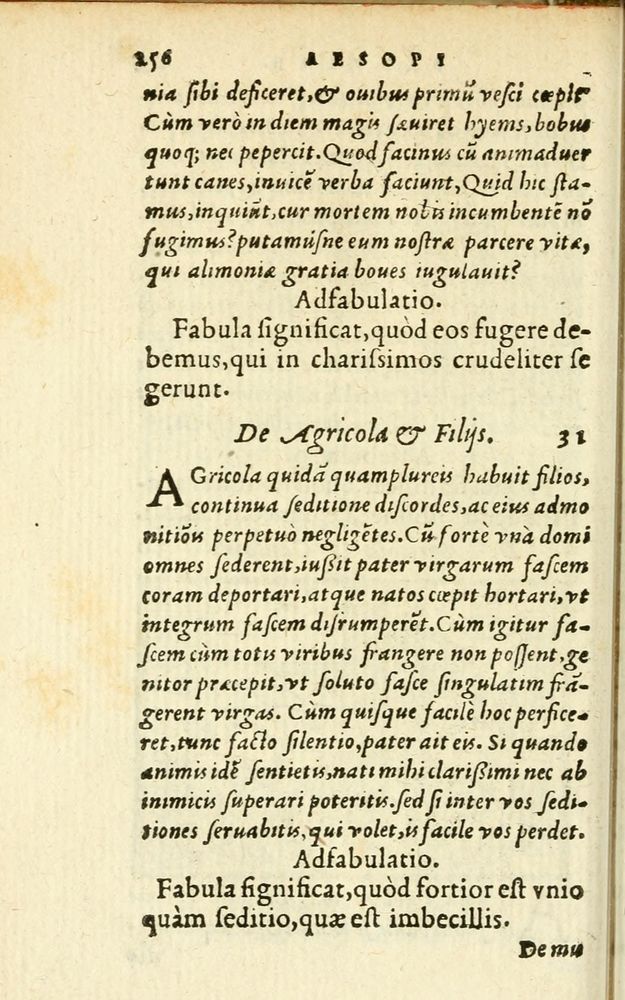 256 AESOPI
nia sibi deficeret,& ouibus primũ vesci cœpit
Cùm verò in diem magis sæuiret hyems,bobus
quoq; nec pepercit.Quod facinus cũ animaduer
tunt canes,inuicẽ verba faciunt,Quid hic sta-
mus,inquiũt,cur mortem nobis incumbentẽ nõ
fugimus?putamúsne eum nostræ parcere vitæ,
qui alimoniæ gratia boues iugulauit?
Adfabulatio.
Fabula significat,quòd eos fugere de-
bemus,qui in charissimos crudeliter se
gerunt.
De Agricola & Filijs. 31
AGricola quidã quamplureis habuit filios,
continua seditione discordes,ac eius admo
nitiõis perpetuò negligẽtes.Cũ fortè vnà domi
omnes sederent,iussit pater virgarum fascem
coram deportari,atque natos cœpit hortari,vt
integrum fascem disrumperẽt.Cùm igitur fa-
scem cùm totis viribus frangere non possent,ge
nitor præcepit,vt soluto fasce singulatim frã-
gerent virgas. Cùm quisque facilè hoc perfice-
ret,tunc facto silentio,pater ait eis. Si quando
animis idẽ sentietis,nati mihi clarissimi nec ab
inimicis superari poteritis.sed si inter vos sedi-
tiones seruabitis,qui volet,is facile vos perdet.
Adfabulatio.
Fabula significat,quòd fortior est vnio
quàm seditio,quæ est imbecillis.
De mu